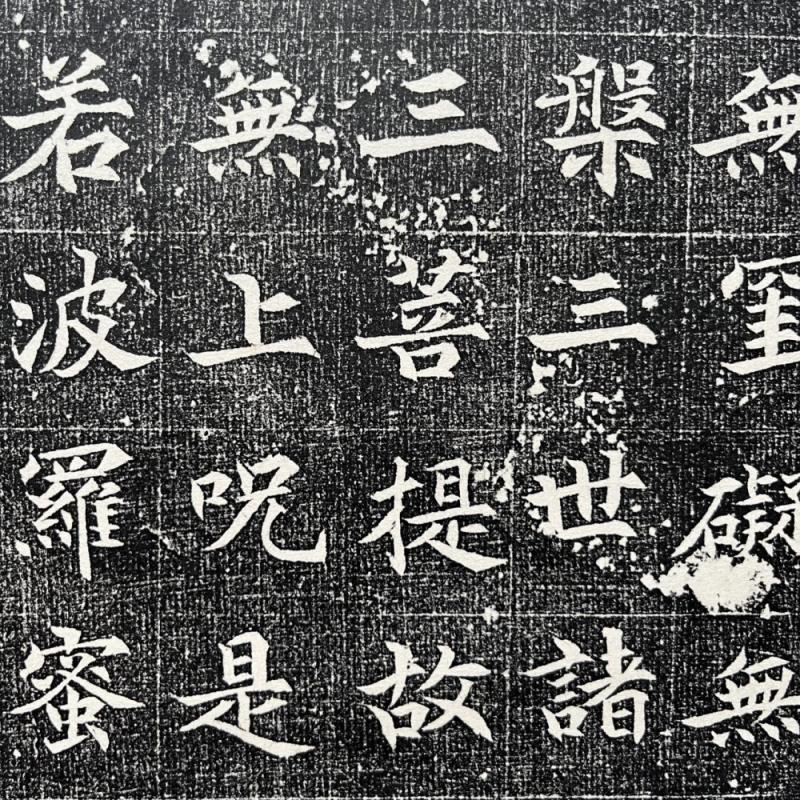 無罣礙無
槃三世諸
三菩提故
無上呪是
若波羅蜜